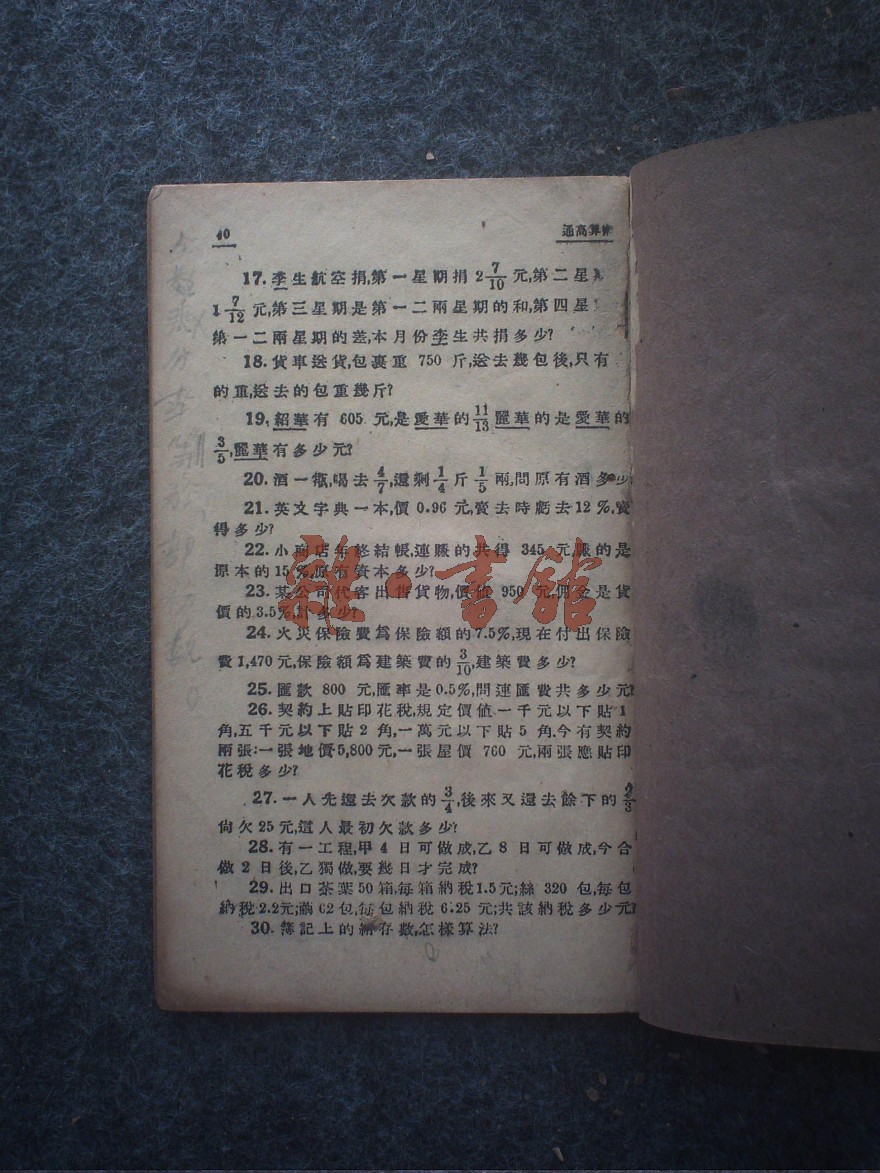 40
通高算術
17. 李生航空捐,第一星期捐 2 7/10 元,第二星
1 7/12 元,第三星期是第一二兩星期的和,第四星
第一二兩星期的差,本月份李生共捐多少?
18. 貨車送貨,包裹重 750 斤,送去幾包後,只有
的重,送去的包重幾斤?
19. 紹華有 605 元,是愛華的 11/13 麗華的是愛華的
3/5,麗華有多少元?
20. 酒一瓶,喝去 4/7,還剩 1/4 斤 1/5 兩,問原有酒多少
21. 英文字典一本,價 0.96 元,賣去時虧去12%,賣
得多少?
22. 小商店年終結帳,連賺的共得 345 元,賺的是
原本的 15%,原有資本多少?
23. 某公司代客出售貨物,價值 950 元,佣金是貨
價的 3.5%,計多少?
24. 火災保險費爲保險額的7.5%,現在付出保險
費1,470元,保險額爲建築費的 3/10,建築費多少?
25. 匯款 800 元,匯率是0.5%,問連匯費共多少元
26. 契約上貼印花稅,規定價值一千元以下貼 1
角,五千元以下貼 2 角,一萬元以下貼 5 角.今有契約
兩張:一張地價5,800元,一張屋價 760 元,兩張應貼印
花稅多少?
27. 一人先還去欠款的 3/4,後來又還去餘下的 2/3
尙欠25元,這人最初欠款多少?
28. 有一工程,甲 4 日可做成,乙 8 日可做成,今合
做 2 日後,乙獨做,要幾日才完成?
29. 出口茶葉50箱,每箱納稅1.5元;絲 320 包,每包
納稅2.2元;繭62包,每包納稅 6.25 元;共該納稅多少元?
30. 簿記上的結存數,怎樣算法?
書館